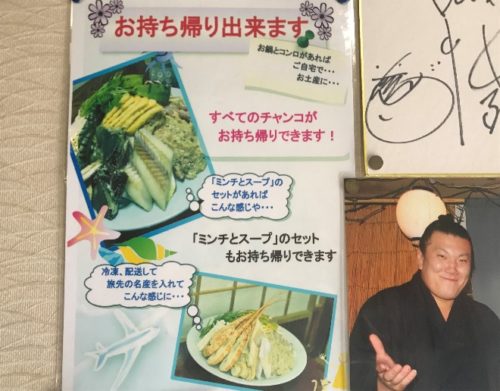 お持ち帰り出来ます
お鍋とコンロがあれば
ご自宅で・・・
お土産に・・・
すべてのチャンコが
お持ち帰りできます！
「ミンチとスープ」の
セットがあれば
こんな感じや・・・
「ミンチとスープ」のセット
もお持ち帰りできます
冷凍、配送して
旅先の名産を入れて
こんな感じに・・・